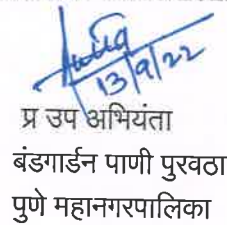 13/9/22
प्र उप अभियंता
बंडगार्डन पाणी पुरवठा
पुणे महानगरपालिका